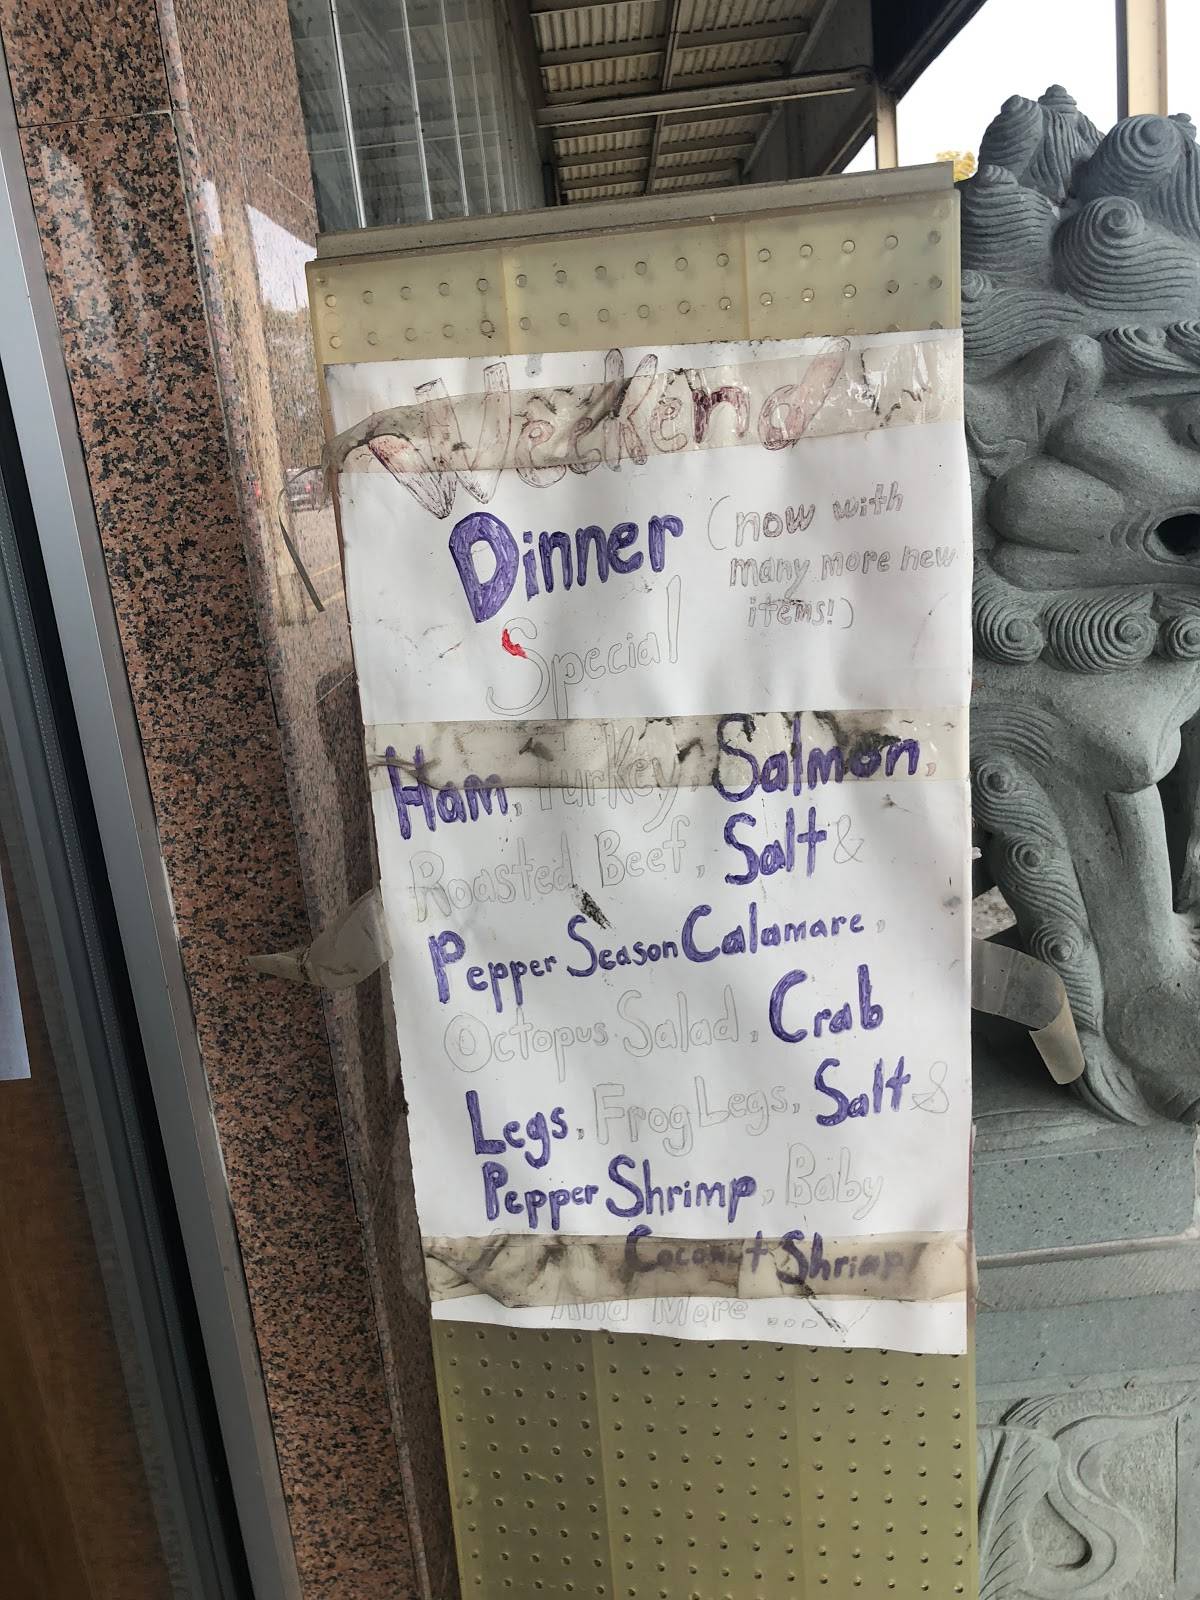 Weekend
Dinner (now with
many more new
items!)
Special
Ham, Turkey, Salmon,
Roasted Beef, Salt &
Pepper Season Calamare,
Octopus Salad, Crab
Legs, Frog Legs, Salt &
Pepper Shrimp, Baby
Coconut Shrimp
And More ....